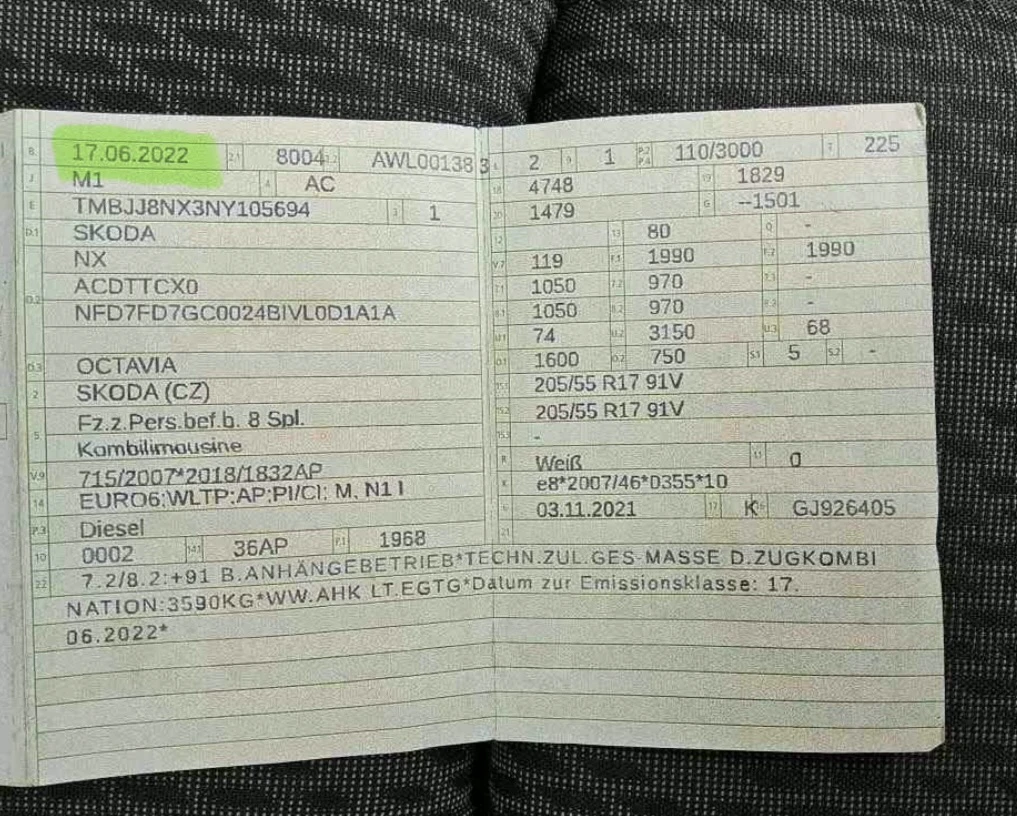 B 17.06.2022 2.1 8004 2.2 AWL00138 3
J M1 4 AC
E TMBJJ8NX3NY105694 3 1
D.1 SKODA
NX
ACDTTCX0
D.2 NFD7FD7GC0024BIVL0D1A1A
D.3 OCTAVIA
2 SKODA (CZ)
Fz.z.Pers.bef.b. 8 Spl.
5 Kombilimousine
V.9 715/2007*2018/1832AP
14 EURO6;WLTP;AP;PI/CI; M, N1 I
P.3 Diesel
10 0002 14.1 36AP P.1 1968
L 2 9 1 P.2 P.4 110/3000 T 225
18 4748 19 1829
20 1479 G --1501
12 13 80 Q -
V.7 119 F.1 1990 F.2 1990
7.1 1050 7.2 970 7.3 -
8.1 1050 8.2 970 8.3 -
U.1 74 U.2 3150 U.3 68
O.1 1600 O.2 750 S.1 5 S.2 -
15.1 205/55 R17 91V
15.2 205/55 R17 91V
15.3 -
R Weiß 11 0
K e8*2007/46*0355*10
6 03.11.2021 17 K 16 GJ926405
21
22 7.2/8.2:+91 B.ANHÄNGEBETRIEB*TECHN.ZUL.GES-MASSE D.ZUGKOMBI
NATION:3590KG*WW.AHK LT.EGTG*Datum zur Emissionsklasse: 17.
06.2022*